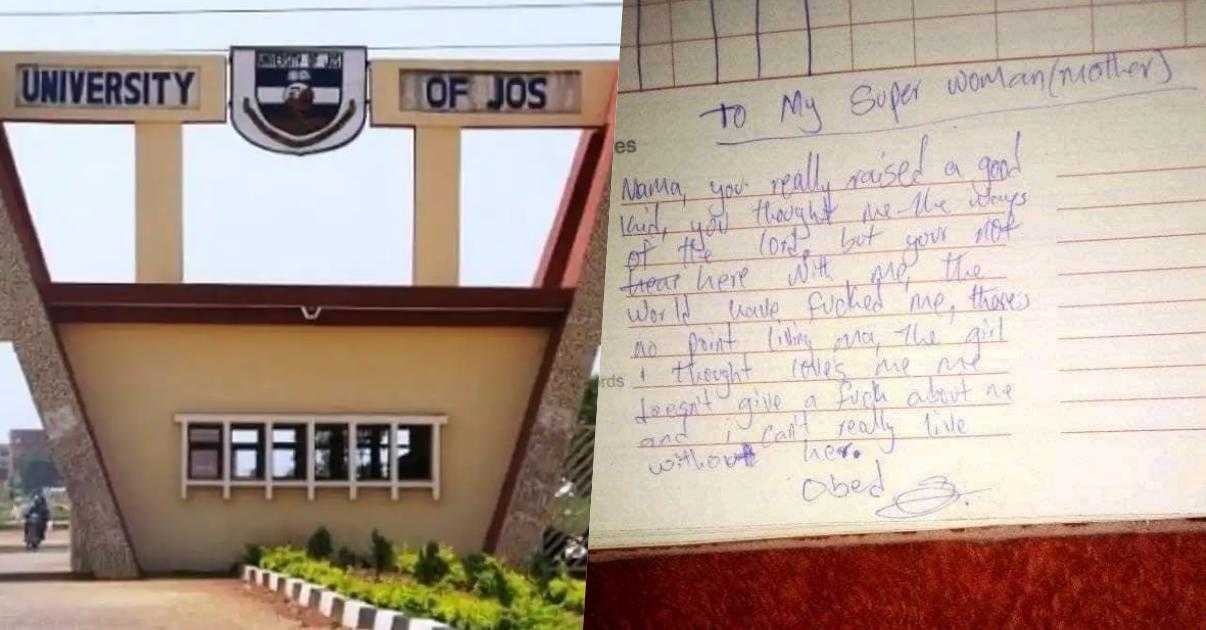 UNIVERSITY
OF JOS
UNIVERSITY OF JOS
To My Super woman(mother)
es
Mama, you really raised a good
kid, you thought me the ways
of the lord, but your not
hear here with me, the
world have fucked me, there's
no point living ma, the girl
rds
i thought loves me me
doesn't give a fuck about me
and i can't really live
without her.
Obed